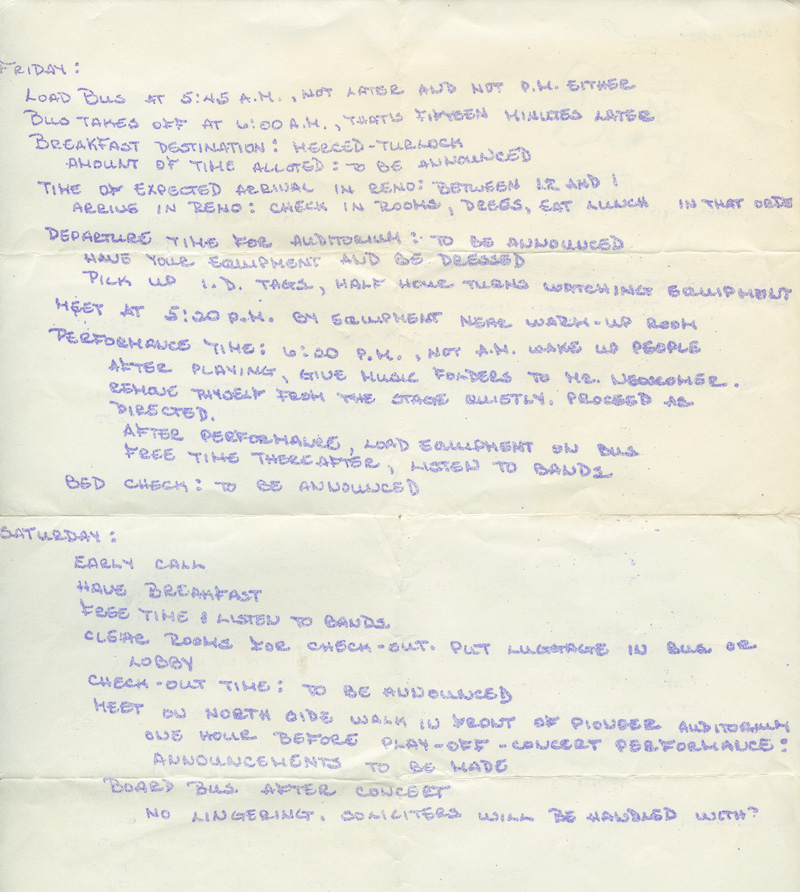 FRIDAY:
LOAD BUS AT 5:45 A.M., NOT LATER AND NOT P.M. EITHER
BUS TAKES OFF AT 6:00 A.M., THAT'S FIFTEEN MINUTES LATER
BREAKFAST DESTINATION: MERCED-TURLOCK
AMOUNT OF TIME ALLOTED: TO BE ANNOUNCED
TIME OF EXPECTED ARRIVAL IN RENO: BETWEEN 12 AND 1
ARRIVE IN RENO: CHECK IN ROOMS, DRESS, EAT LUNCH IN THAT ORDE
DEPARTURE TIME FOR AUDITORIUM: TO BE ANNOUNCED
HAVE YOUR EQUIPMENT AND BE DRESSED
PICK UP I.D. TAGS, HALF HOUR TURNS WATCHING EQUIPMENT
MEET AT 5:20 P.M. BY EQUIPMENT NEAR WARM-UP ROOM
PERFORMANCE TIME: 6:20 P.M., NOT A.M. WAKE UP PEOPLE
AFTER PLAYING, GIVE MUSIC FOLDERS TO MR.
REMOVE THYSELF FROM THE STAGE QUIETLY. PROCEED AS
DIRECTED.
AFTER PERFORMANCE, LOAD EQUIPMENT ON BUS
FREE TIME THEREAFTER, LISTEN TO BANDS
BED CHECK: TO BE ANNOUNCED
SATURDAY:
EARLY CALL
HAVE BREAKFAST
FREE TIME & LISTEN TO BANDS
CLEAR ROOMS FOR CHECK-OUT. PUT LUGGAGE IN BUS OR
LOBBY
CHECK-OUT TIME: TO BE ANNOUNCED
MEET ON NORTH SIDE WALK IN FRONT OF PIONEER AUDITORIUM
ONE HOUR BEFORE PLAY-OFF-CONCERT PERFORMANCE:
ANNOUNCEMENTS TO BE MADE
BOARD BUS AFTER CONCERT
NO LINGERING. SOLICITERS WILL BE HANDLED WITH?